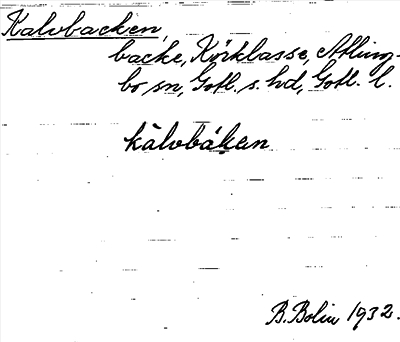 Kalvbacken,
backe, Körklasse, Atling-
bo sn, Gotl. s. hd, Gotl. l.
kàlvbákan
B. Bolin 1932.